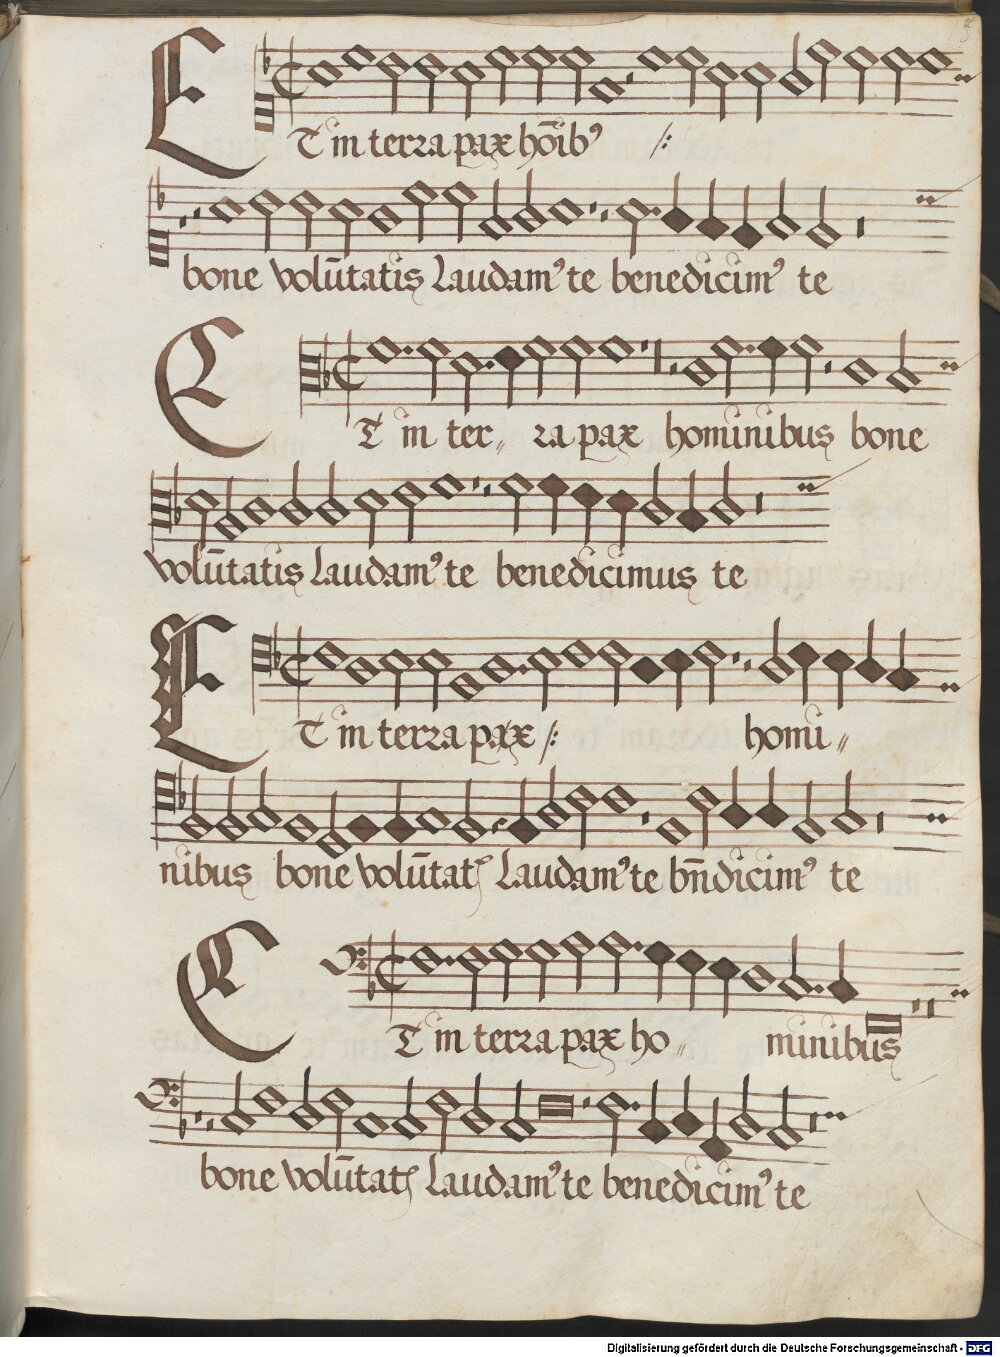 ET in terra pax hōib⁹ /:
bone volūtatis Laudam⁹ te benedicim⁹ te
ET in ter〃 ra pax hominibus bone
volūtatis Laudam⁹ te benedicimus te
ET in terra pax /: homi〃
nibus bone volūtatꝭ Laudam⁹ te bn̄dicim⁹ te
ET in terra pax ho〃 minibus
bone volūtatꝭ Laudam⁹ te benedicim⁹ te
Digitalisierung gefördert durch die Deutsche Forschungsgemeinschaft - DFG